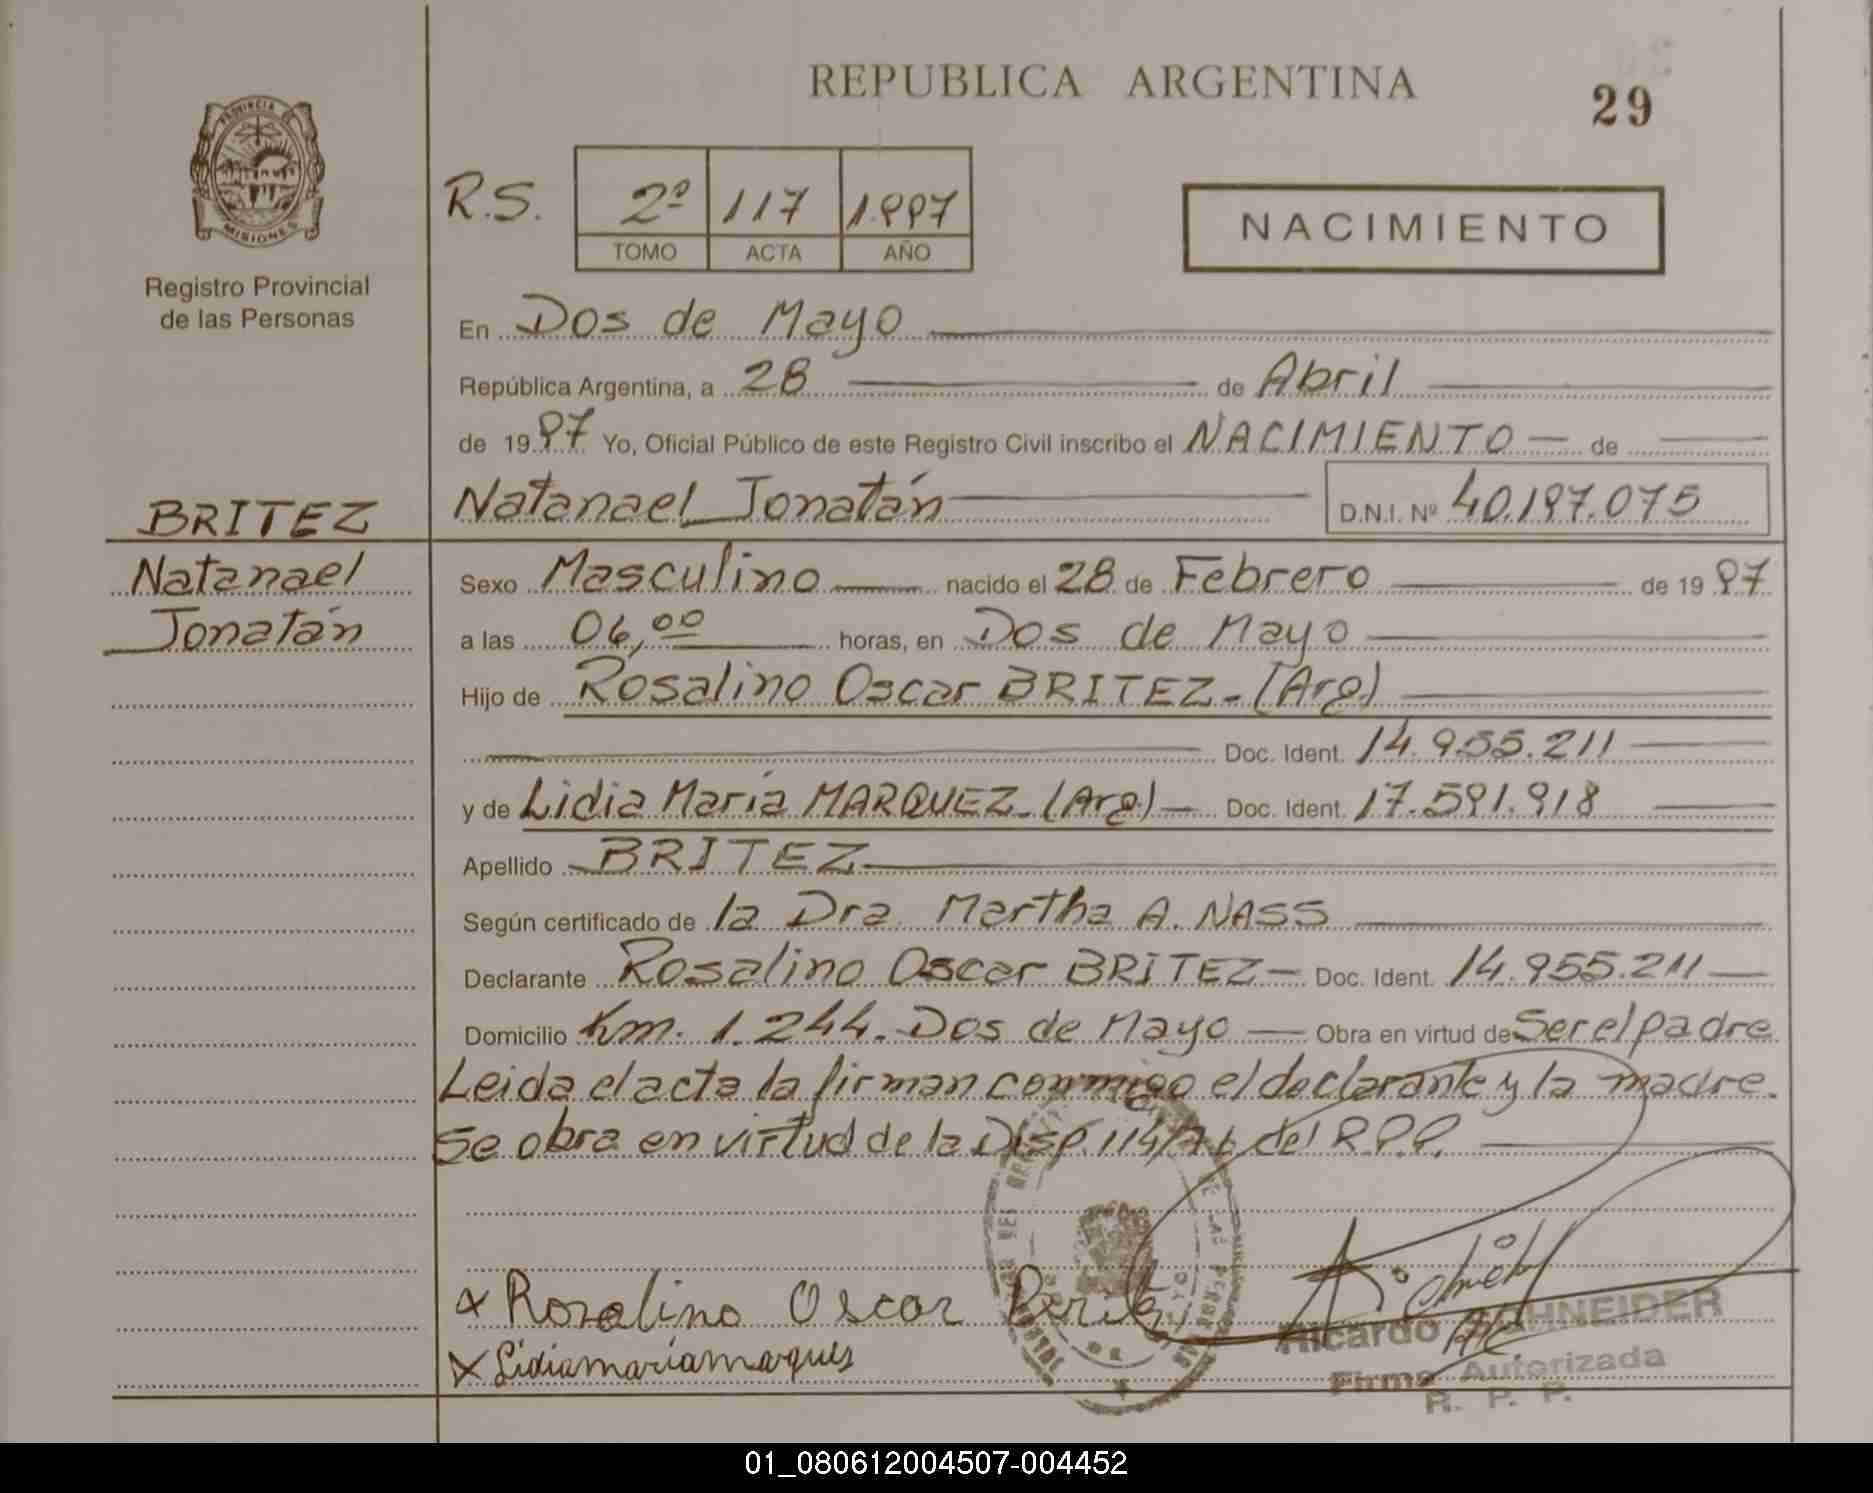 REPUBLICA ARGENTINA
29
PROVINCIA DE
MISIONES
Registro Provincial
de las Personas
R.S.
2º 117 1.997
TOMO ACTA AÑO
NACIMIENTO
En Dos de Mayo
República Argentina, a 28 de Abril
de 1997 Yo, Oficial Público de este Registro Civil inscribo el NACIMIENTO de
BRITEZ
Natanael Jonatán
D.N.I. Nº 40.197.075
Natanael
Jonatán
Sexo Masculino nacido el 28 de Febrero de 1997
a las 06,00 horas, en Dos de Mayo
Hijo de Rosalino Oscar BRITEZ - (Arg)
Doc. Ident. 14.955.211
y de Lidia María MARQUEZ - (Arg) Doc. Ident. 17.591.918
Apellido BRITEZ
Según certificado de la Dra. Martha A. NASS
Declarante Rosalino Oscar BRITEZ Doc. Ident. 14.955.211
Domicilio Km. 1.244. Dos de Mayo Obra en virtud de Ser el padre
Leida el acta la firman conmigo el declarante y la madre.
Se obra en virtud de la Disp. 114/76 del R.P.P.
x Rosalino Oscar Britez
x Lidia maria marques
Ricardo SCHNEIDER
Firma Autorizada
R. P. P.
01_080612004507-004452